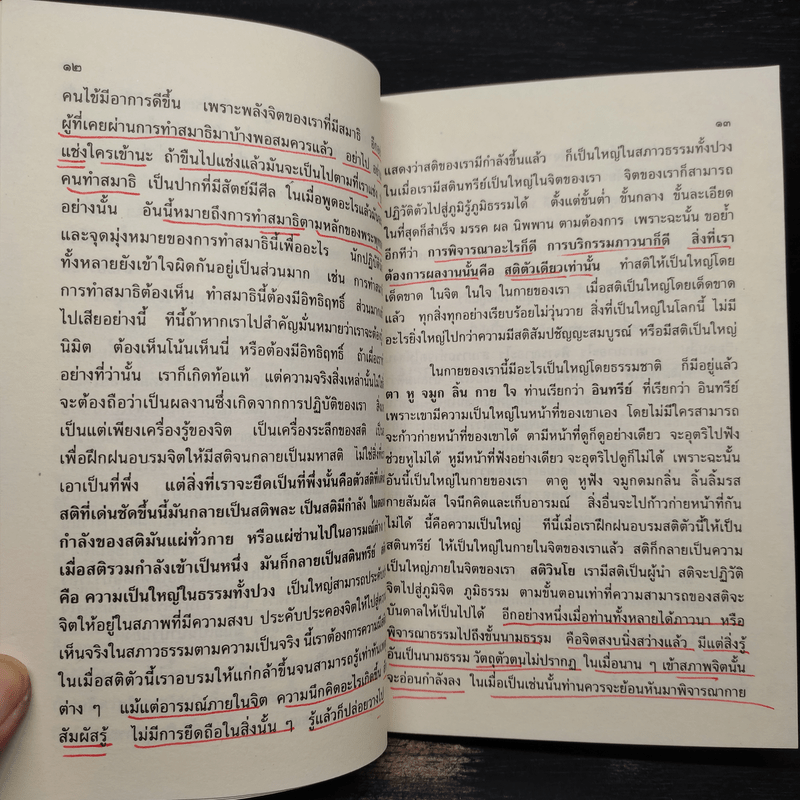 ๑๒
คนไข้มีอาการดีขึ้น เพราะพลังจิตของเราที่มีสมาธิ
ผู้ที่เคยผ่านการทำสมาธิมาบ้างพอสมควรแล้ว อย่าไป
แช่งใครเข้านะ ถ้าขืนไปแช่งแล้วมันจะเป็นไปตามที่เรา
คนทำสมาธิ เป็นปากที่มีสัตย์มีศีล ในเมื่อพูดอะไรแล้วมัน
อย่างนั้น อันนี้หมายถึงการทำสมาธิตามหลักของ
และจุดมุ่งหมายของการทำสมาธินี้เพื่ออะไร
ทั้งหลายยังเข้าใจผิดกันอยู่เป็นส่วนมาก เช่น
การทำสมาธิต้องเห็น ทำสมาธินี้ต้องมีอิทธิฤทธิ์
ไปเสียอย่างนี้ ทีนี้ถ้าหากเราไปสำคัญมั่นหมายว่าเราจะต้อง
นิมิต ต้องเห็นโน้นเห็นนี่ หรือต้องมีอิทธิฤทธิ์
อย่างที่ว่านั้น เราก็เกิดท้อแท้ แต่ความจริงสิ่งเหล่านั้น
จะต้องถือว่าเป็นผลงานซึ่งเกิดจากการปฏิบัติของเรา
เป็นแต่เพียงเครื่องรู้ของจิต เป็นเครื่องระลึกของสติ
เพื่อฝึกฝนอบรมจิตให้มีสติจนกลายเป็นมหาสติ
เอาเป็นที่พึ่ง แต่สิ่งที่เราจะยึดเป็นที่พึ่งนั้นคือตัวสติ
สติที่เด่นชัดขึ้นนี้มันกลายเป็นสติพละ เป็นสติมีกำลัง
กำลังของสติมันแผ่ทั่วกาย หรือแผ่ซ่านไปในอารมณ์
เมื่อสติรวมกำลังเข้าเป็นหนึ่ง มันก็กลายเป็นสตินทรีย์
คือ ความเป็นใหญ่ในธรรมทั้งปวง เป็นใหญ่สามารถ
จิตให้อยู่ในสภาพที่มีความสงบ ประคับประคองจิตให้ไปสู่
เห็นจริงในสภาวธรรมตามความเป็นจริง นี้เราต้องการ
ในเมื่อสติตัวนี้เราอบรมให้แก่กล้าขึ้นจนสามารถรู้เท่า
ต่าง ๆ แม้แต่อารมณ์ภายในจิต ความนึกคิดอะไรเกิดขึ้น
สัมผัสรู้ ไม่มีการยึดถือในสิ่งนั้น ๆ รู้แล้วก็ปล่อยวางไป
๑๓
แสดงว่าสติของเรามีกำลังขึ้นแล้ว ก็เป็นใหญ่ในสภาวธรรมทั้งปวง
ในเมื่อเรามีสตินทรีย์เป็นใหญ่ในจิตของเรา จิตของเราก็สามารถ
ปฏิวัติตัวไปสู่ภูมิรู้ภูมิธรรมได้ ตั้งแต่ขั้นต่ำ ขั้นกลาง ขั้นละเอียด
ในที่สุดก็สำเร็จ มรรค ผล นิพพาน ตามต้องการ เพราะฉะนั้น ขอย้ำ
อีกทีว่า การพิจารณาอะไรก็ดี การบริกรรมภาวนาก็ดี สิ่งที่เรา
ต้องการผลงานนั้นคือ สติตัวเดียวเท่านั้น ทำสติให้เป็นใหญ่โดย
เด็ดขาด ในจิต ในใจ ในกายของเรา เมื่อสติเป็นใหญ่โดยเด็ดขาด
แล้ว ทุกสิ่งทุกอย่างเรียบร้อยไม่วุ่นวาย สิ่งที่เป็นใหญ่ในโลกนี้ ไม่มี
อะไรยิ่งใหญ่ไปกว่าความมีสติสัมปชัญญะสมบูรณ์ หรือมีสติเป็นใหญ่
ในกายของเรานี้มีอะไรเป็นใหญ่โดยธรรมชาติ ก็มีอยู่แล้ว
ตา หู จมูก ลิ้น กาย ใจ ท่านเรียกว่า อินทรีย์ ที่เรียกว่า อินทรีย์
เพราะเขามีความเป็นใหญ่ในหน้าที่ของเขาเอง โดยไม่มีใครสามารถ
จะก้าวก่ายหน้าที่ของเขาได้ ตามีหน้าที่ดูก็ดูอย่างเดียว จะอุตริไปฟัง
ช่วยหูไม่ได้ หูมีหน้าที่ฟังอย่างเดียว จะอุตริไปดูก็ไม่ได้ เพราะฉะนั้น
อันนี้เป็นใหญ่ในกายของเรา ตาดู หูฟัง จมูกดมกลิ่น ลิ้นลิ้มรส
กายสัมผัส ใจนึกคิดและเก็บอารมณ์ สิ่งอื่นจะไปก้าวก่ายหน้าที่กัน
ไม่ได้ นี้คือความเป็นใหญ่ ทีนี้เมื่อเราฝึกฝนอบรมสติตัวนี้ให้เป็น
สตินทรีย์ ให้เป็นใหญ่ในกายในจิตของเราแล้ว สติก็กลายเป็นความ
เป็นใหญ่ภายในจิตของเรา สติวินโย เรามีสติเป็นผู้นำ สติจะปฏิวัติ
จิตไปสู่ภูมิจิต ภูมิธรรม ตามขั้นตอนเท่าที่ความสามารถของสติจะ
บันดาลให้เป็นไปได้ อีกอย่างหนึ่งเมื่อท่านทั้งหลายได้ภาวนา หรือ
พิจารณาธรรมไปถึงขั้นนามธรรม คือจิตสงบนิ่งสว่างแล้ว มีแต่สิ่งรู้
อันเป็นนามธรรม วัตถุตัวตนไม่ปรากฏ ในเมื่อนาน ๆ เข้าสภาพจิตนั้น
จะอ่อนกำลังลง ในเมื่อเป็นเช่นนั้นท่านควรจะย้อนหันมาพิจารณากาย